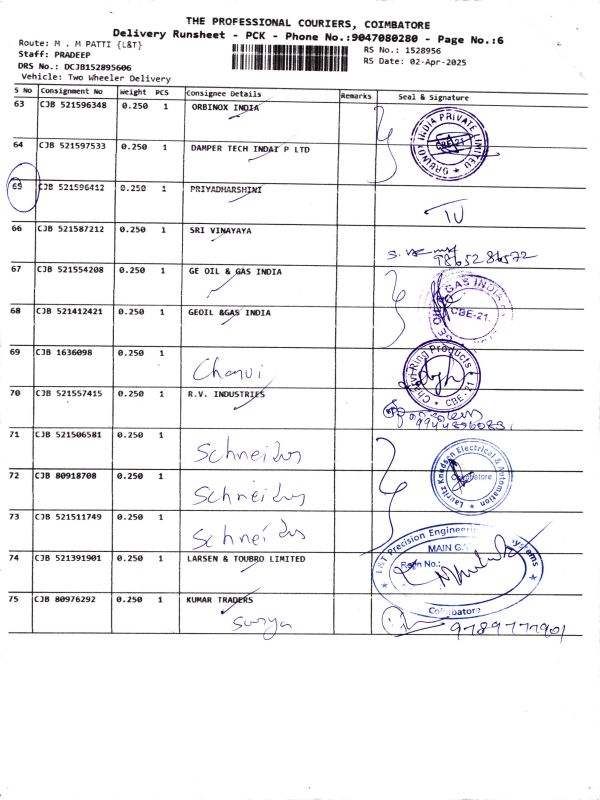 THE PROFESSIONAL COURIERS, COIMBATORE
Delivery Runsheet - PCK - Phone No.:9047080280 - Page No.:6
Route: M . M PATTI {L&T}
Staff: PRADEEP
DRS No.: DCJB152895606
Vehicle: Two Wheeler Delivery
RS No.: 1528956
RS Date: 02-Apr-2025
S No Consignment No Weight PCS Consignee Details Remarks Seal & Signature
63 CJB 521596348 0.250 1 ORBINOX INDIA
ORBINOX INDIA PRIVATE LIMITED CBE-21
64 CJB 521597533 0.250 1 DAMPER TECH INDAI P LTD
65 CJB 521596412 0.250 1 PRIYADHARSHINI
66 CJB 521587212 0.250 1 SRI VINAYAYA
9865286572
67 CJB 521554208 0.250 1 GE OIL & GAS INDIA
GAS INDIA CBE-21.
68 CJB 521412421 0.250 1 GEOIL &GAS INDIA
69 CJB 1636098 0.250 1 Charvi
Charvi Ring Products CBE - 21
70 CJB 521557415 0.250 1 R.V. INDUSTRIES
71 CJB 521506581 0.250 1 Schneider
Lauritz Knudsen Electrical & Automation Coimbatore
72 CJB 80918708 0.250 1 Schneider
73 CJB 521511749 0.250 1 Schneider
74 CJB 521391901 0.250 1 LARSEN & TOUBRO LIMITED
L&T Precision Engineering Systems
MAIN GATE
Regn No.:
Coimbatore
75 CJB 80976292 0.250 1 KUMAR TRADERS
Surya
9789777901